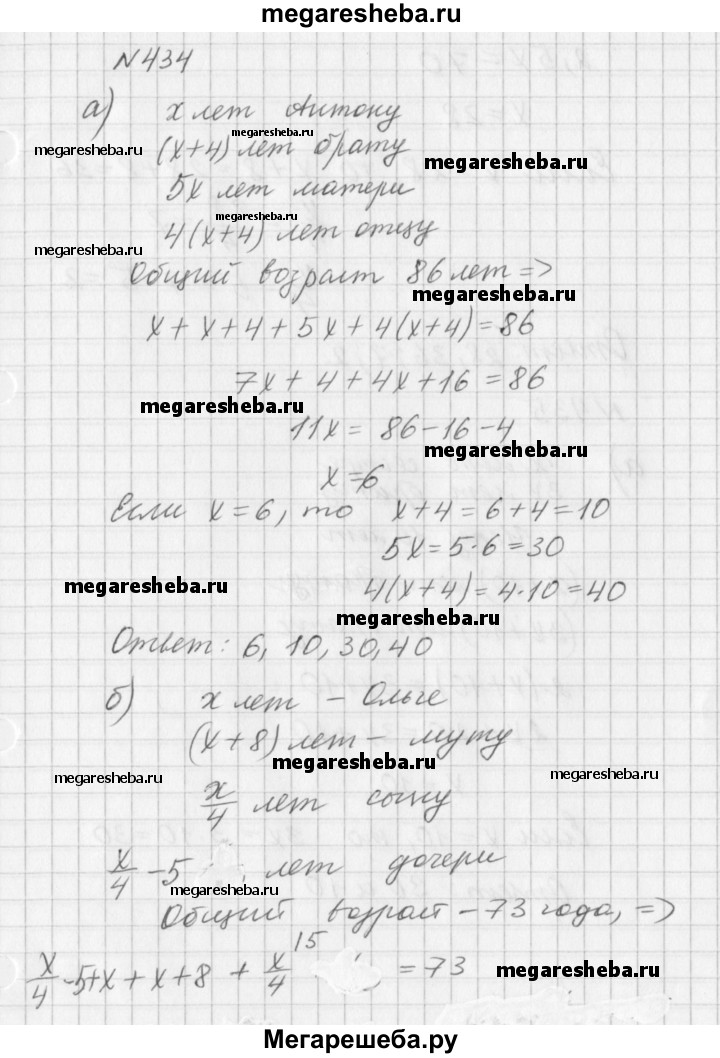 megaresheba.ru
N434
а) x лет Антону
megaresheba.ru
megaresheba.ru
(x+4) лет брату
megaresheba.ru
5x лет матери
megaresheba.ru
4(x+4) лет отцу
megaresheba.ru
Общий возраст 86 лет =>
megaresheba.ru
x + x + 4 + 5x + 4(x+4) = 86
7x + 4 + 4x + 16 = 86
megaresheba.ru
11x = 86 - 16 - 4
megaresheba.ru
x = 6
Если x = 6, то x + 4 = 6 + 4 = 10
5x = 5·6 = 30
megaresheba.ru
4(x+4) = 4·10 = 40
megaresheba.ru
Ответ: 6, 10, 30, 40
б) x лет - Ольге
(x+8) лет - мужу
megaresheba.ru
megaresheba.ru
megaresheba.ru
x/4 лет сыну
x/4 - 5 лет дочери
megaresheba.ru
Общий возраст - 73 года, =>
x/4 - 5 + x + x + 8 + x/4 15 = 73
megaresheba.ru
Мегарешеба.ру